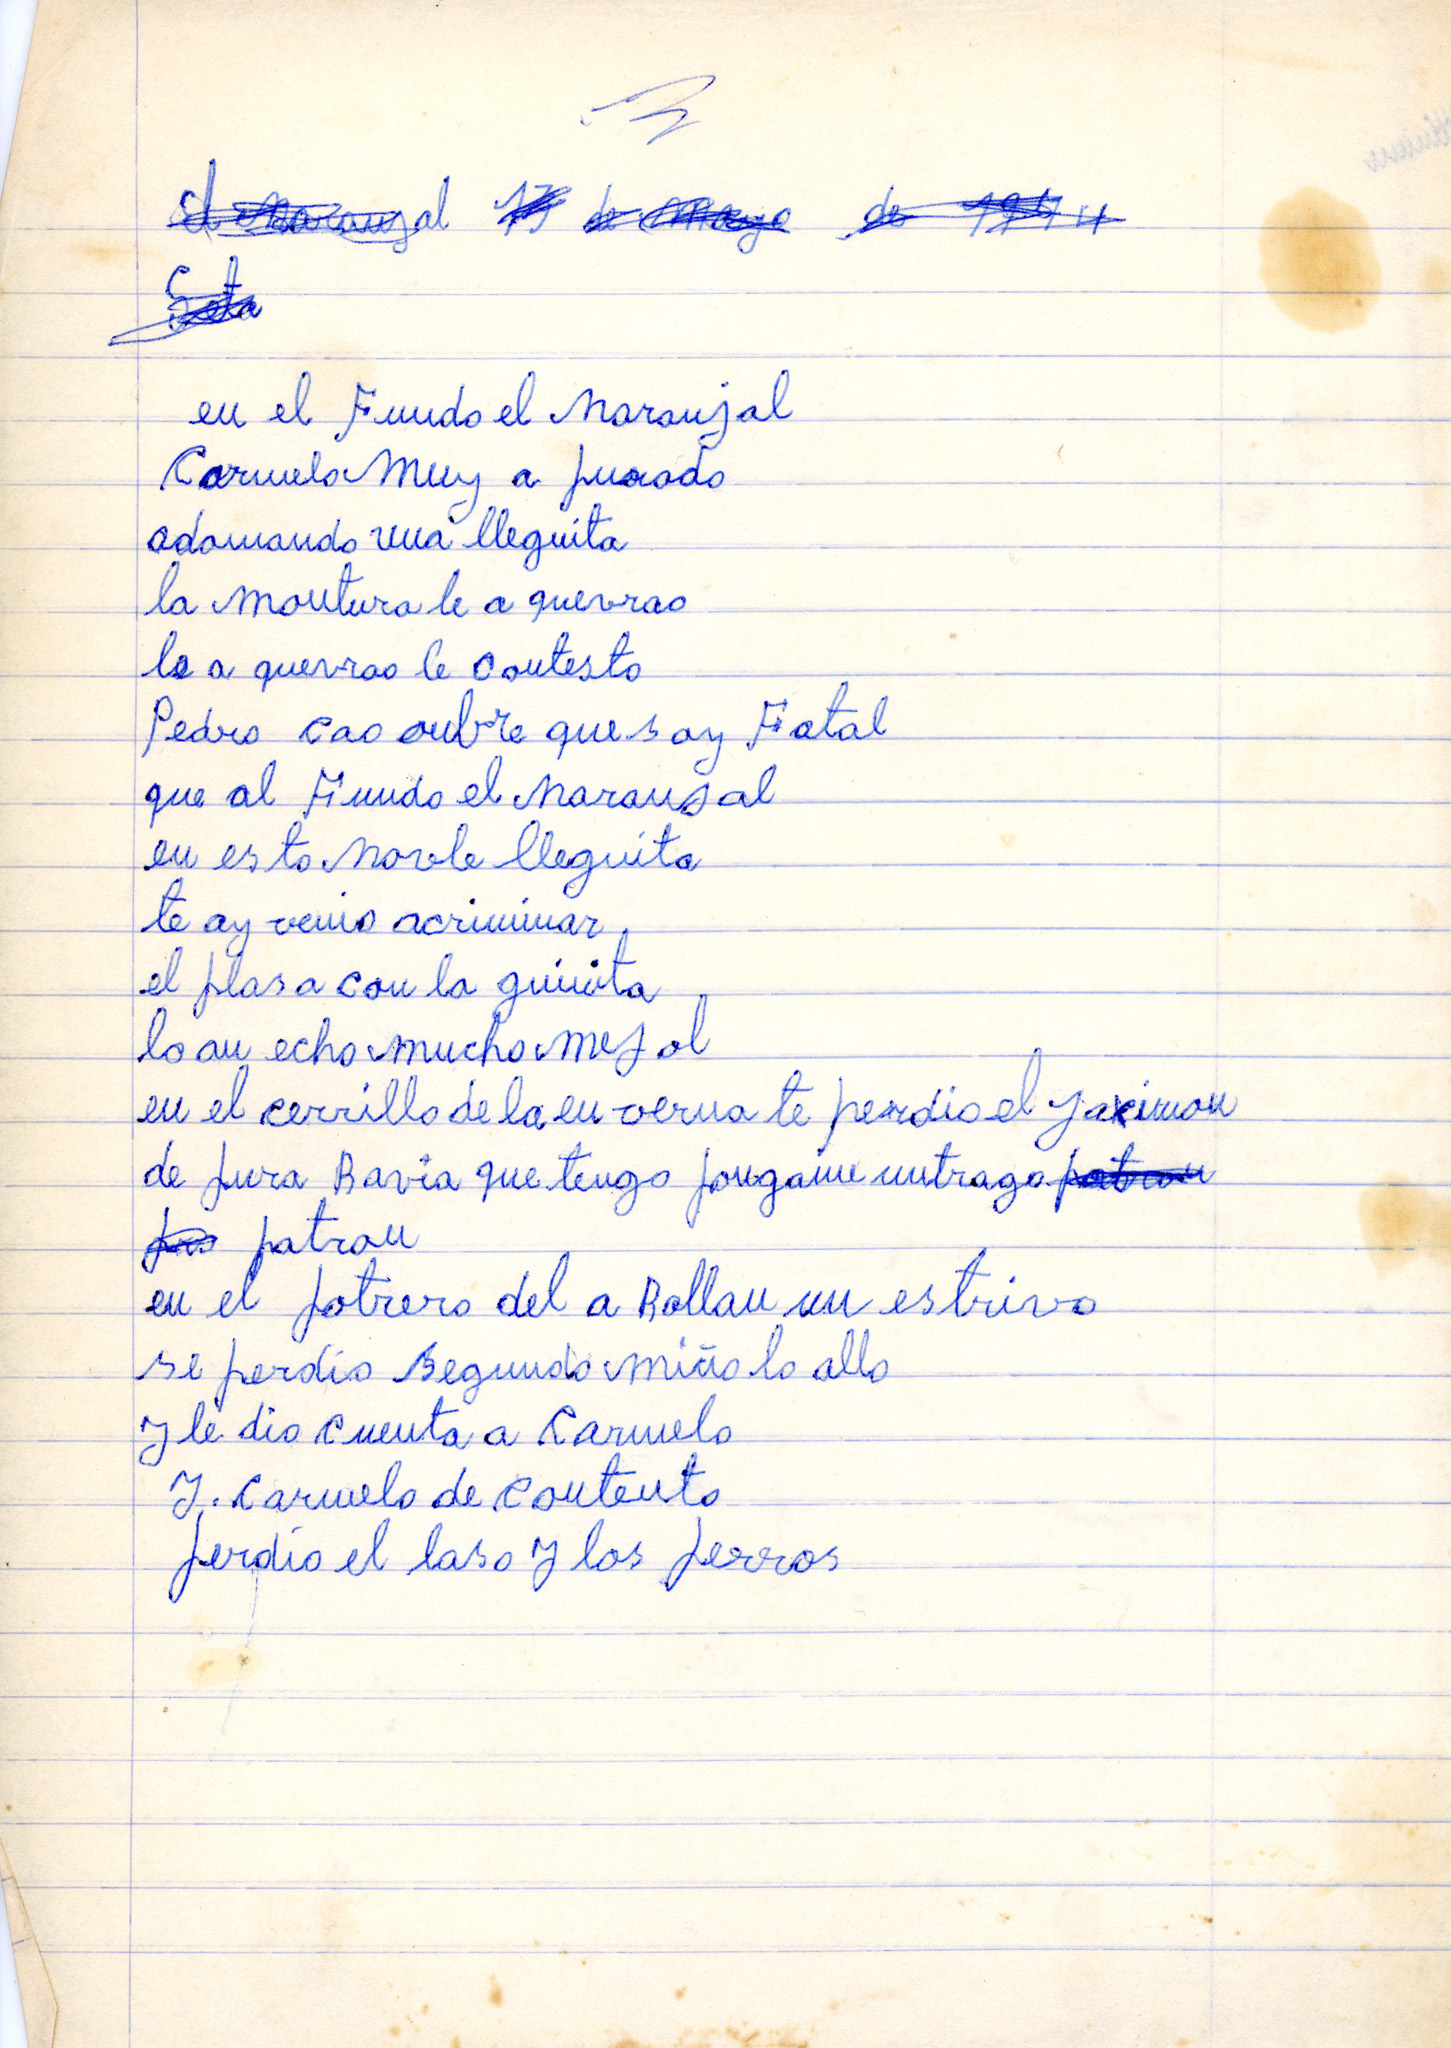 El Naranjal 17 de Mayo de
en el Fundo el Naranjal
Carmelo Muy a purado
adomando una lleguita
la Montura le a quevrao
le a quevrao le Contesto
Pedro cao que soy Fatal
que al Fundo el Naranjal
en esta Novle lleguita
te ay venio acriminar
el plasa con la
lo an echo mucho Mejol
en el cerrillo de la en verna te perdio el
de pura Ravia que tengo pongame un trago patron
patron
en el potrero del a Rollan un estrivo
se perdio Segundo Miño lo allo
y le dio Cuenta a Carmelo
y. Carmelo de Contento
perdio el laso y los perros